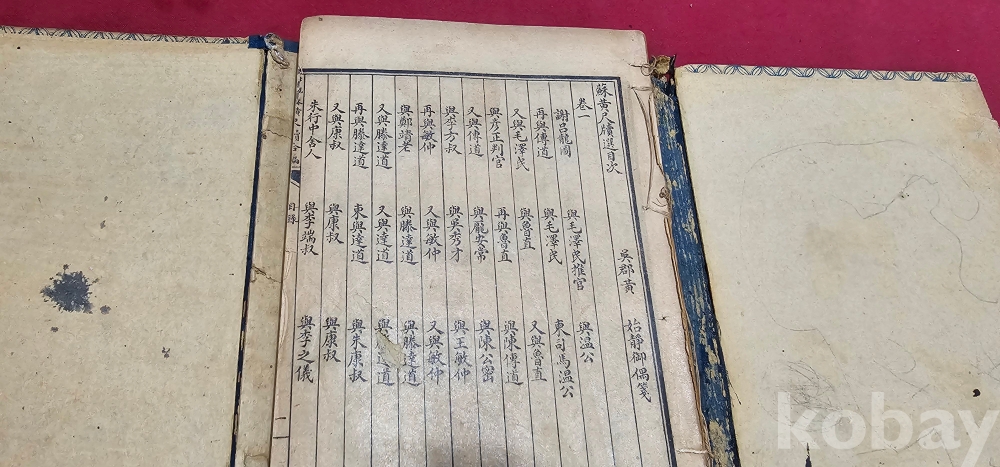 蘇黃尺牘選目次
吳郡黃 始靜御偶箋
卷一
謝呂龍圖 與毛澤民推官 與溫公
再與傳道 與毛澤民 東司馬溫公
又與毛澤民 與魯直 又與魯直
與彥正判官 再與魯直 與陳傳道
又與傳道 與龐安常 與陳公密
與李方叔 與吳秀才 與王敏仲
再與敏仲 又與敏仲 又與敏仲
與鄭靖老 與滕達道 與滕達道
又與滕達道 又與達道 與達道
再與滕達道 東與達道 與朱康叔
又與康叔 與康叔 與康叔
朱行中舍人 與李端叔 與李之儀
目錄 一
kobay